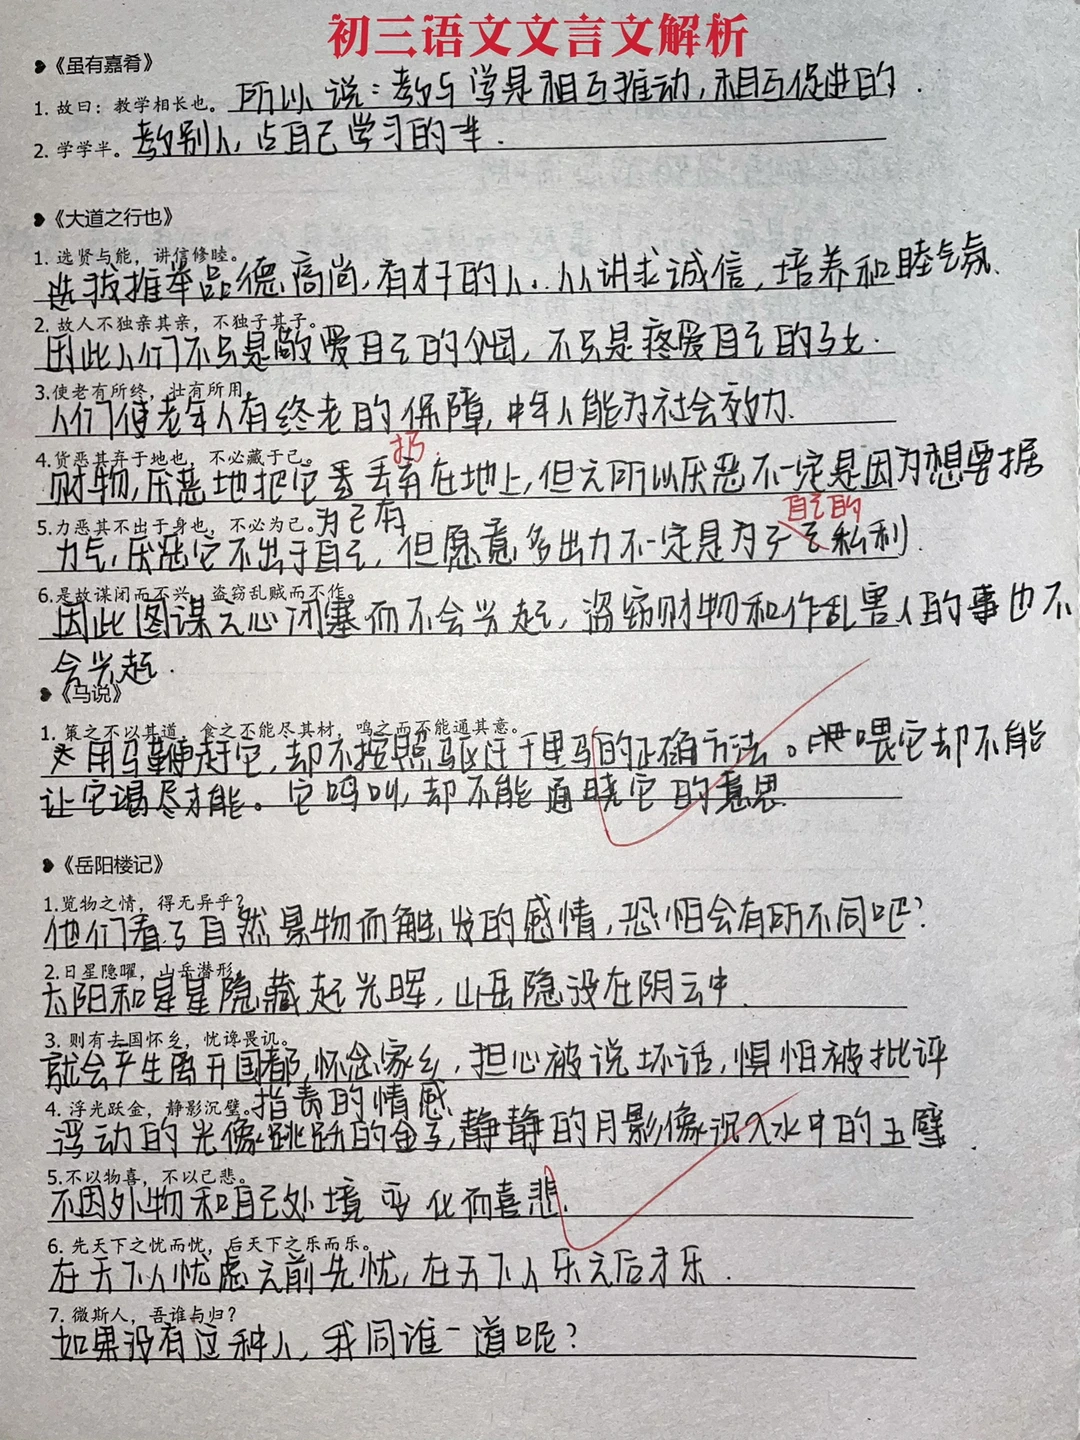 初三语文文言文解析
《虽有嘉肴》
1. 故曰：教学相长也。 所以说：教与学是相互推动，相互促进的.
2. 学学半。 教别人，占自己学习的一半.
《大道之行也》
1. 选贤与能，讲信修睦。
选拔推举品德高尚，有才干的人.. 人讲求诚信，培养和睦气氛.
2. 故人不独亲其亲，不独子其子。
因此人们不只是敬爱自己的父母，不只是疼爱自己的子女.
3.使老有所终，壮有所用
人们使老年人有终老的保障，中年人能为社会效力.
4.货恶其弃于地也，不必藏于己。 扔
财物，厌恶地把它丢弃在地上，但之所以厌恶不一定是因为想要据
5.力恶其不出于身也，不必为己。为己有 自己的
力气，厌恶它不出于自己，但愿意多出力不一定是为了私利.
6.是故谋闭而不兴，盗窃乱贼而不作。
因此图谋之心闭塞而不会兴起，盗窃财物和作乱害人的事也不
会兴起.
《马说》
1. 策之不以其道，食之不能尽其材，鸣之而不能通其意。
用马鞭赶它，却不按照驱使千里马的正确方法。喂它却不能
让它竭尽才能。它鸣叫，却不能通晓它的意思.
《岳阳楼记》
1.览物之情，得无异乎？
他们看了自然景物而触发的感情，恐怕会有所不同吧？
2.日星隐曜，山岳潜形
太阳和星星隐藏起光晖，山岳隐没在阴云中.
3. 则有去国怀乡，忧谗畏讥。
就会产生离开国都，怀念家乡，担心被说坏话，惧怕被批评
4. 浮光跃金，静影沉璧。指责的情感
浮动的光像跳跃的金子，静静的月影像沉入水中的玉璧.
5.不以物喜，不以己悲。
不因外物和自己处境变化而喜悲.
6. 先天下之忧而忧，后天下之乐而乐。
在天下人忧虑之前先忧，在天下人乐之后才乐.
7. 微斯人，吾谁与归？
如果没有这种人，我同谁一道呢？